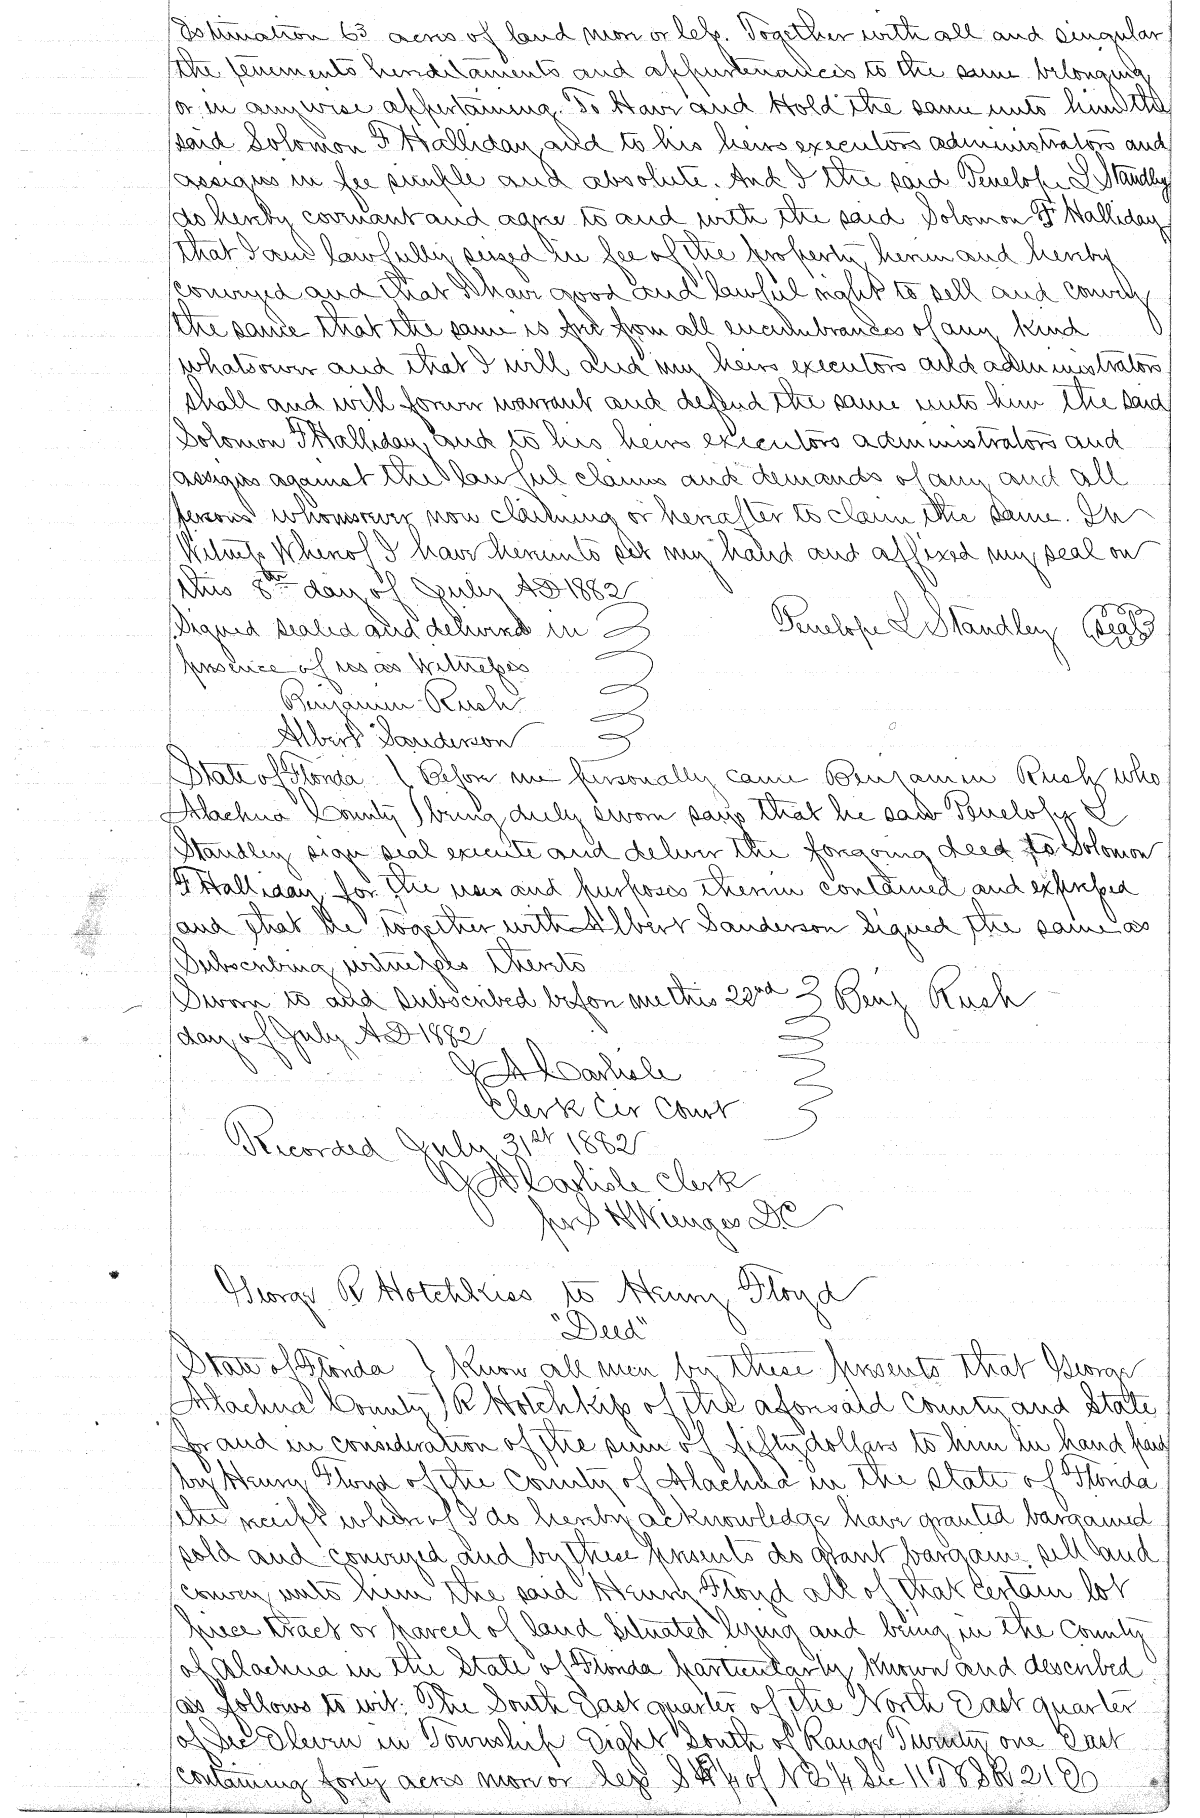 Estimation 63 acres of land more or less. Together with all and singular
the tenements hereditaments and appurtenances to the same belonging
or in anywise appertaining. To Have and Hold the same unto him the
said Solomon F Halliday and to his heirs executors administrators and
assigns in fee simple and absolute. And I the said Penelope L Standley
do hereby covenant and agree to and with the said Solomon F Halliday
that I am lawfully seized in fee of the property herein and hereby
conveyed and that I have good and lawful right to sell and convey
the same that the same is free from all encumbrances of any kind
whatsoever and that I will and my heirs executors and administrators
shall and will forever warrant and defend the same unto him the said
Solomon F Halliday and to his heirs executors administrators and
assigns against the lawful claims and demands of any and all
persons whomsoever now claiming or hereafter to claim the same. In
Witness Whereof I have hereunto set my hand and affixed my seal on
this 8th day of July AD 1882
Signed sealed and delivered in Penelope L Standley (seal)
presence of us as Witnesses
Benjamin Rush
Albert Sanderson
State of Florida } Before me personally came Benjamin Rush who
Alachua County } being duly sworn says that he saw Penelope L
Standley sign seal execute and deliver the foregoing deed to Solomon
F Halliday for the uses and purposes therein contained and expressed
and that he together with Albert Sanderson signed the same as
Subscribing witnesses thereto
Sworn to and subscribed before me this 22nd Benj Rush
day of July AD 1882
J A Carlisle
Clerk Cir Court
Recorded July 31st 1882
J A Carlisle Clerk
per S H Wienges DC
George R Hotchkiss to Henry Floyd
"Deed"
State of Florida } Know all men by these presents that George
Alachua County } R Hotchkiss of the aforesaid County and State
for and in consideration of the sum of fifty dollars to him in hand paid
by Henry Floyd of the County of Alachua in the State of Florida
the receipt whereof I do hereby acknowledge have granted bargained
sold and conveyed and by these presents do grant bargain sell and
convey unto him the said Henry Floyd all of that certain lot
piece tract or parcel of land situated lying and being in the County
of Alachua in the State of Florida particularly known and described
as follows to wit: The South East quarter of the North East quarter
of Sec Eleven in Township Eight South of Range Twenty one East
containing forty acres more or less SE 1/4 of NE 1/4 Sec 11 T 8 S R 21 E